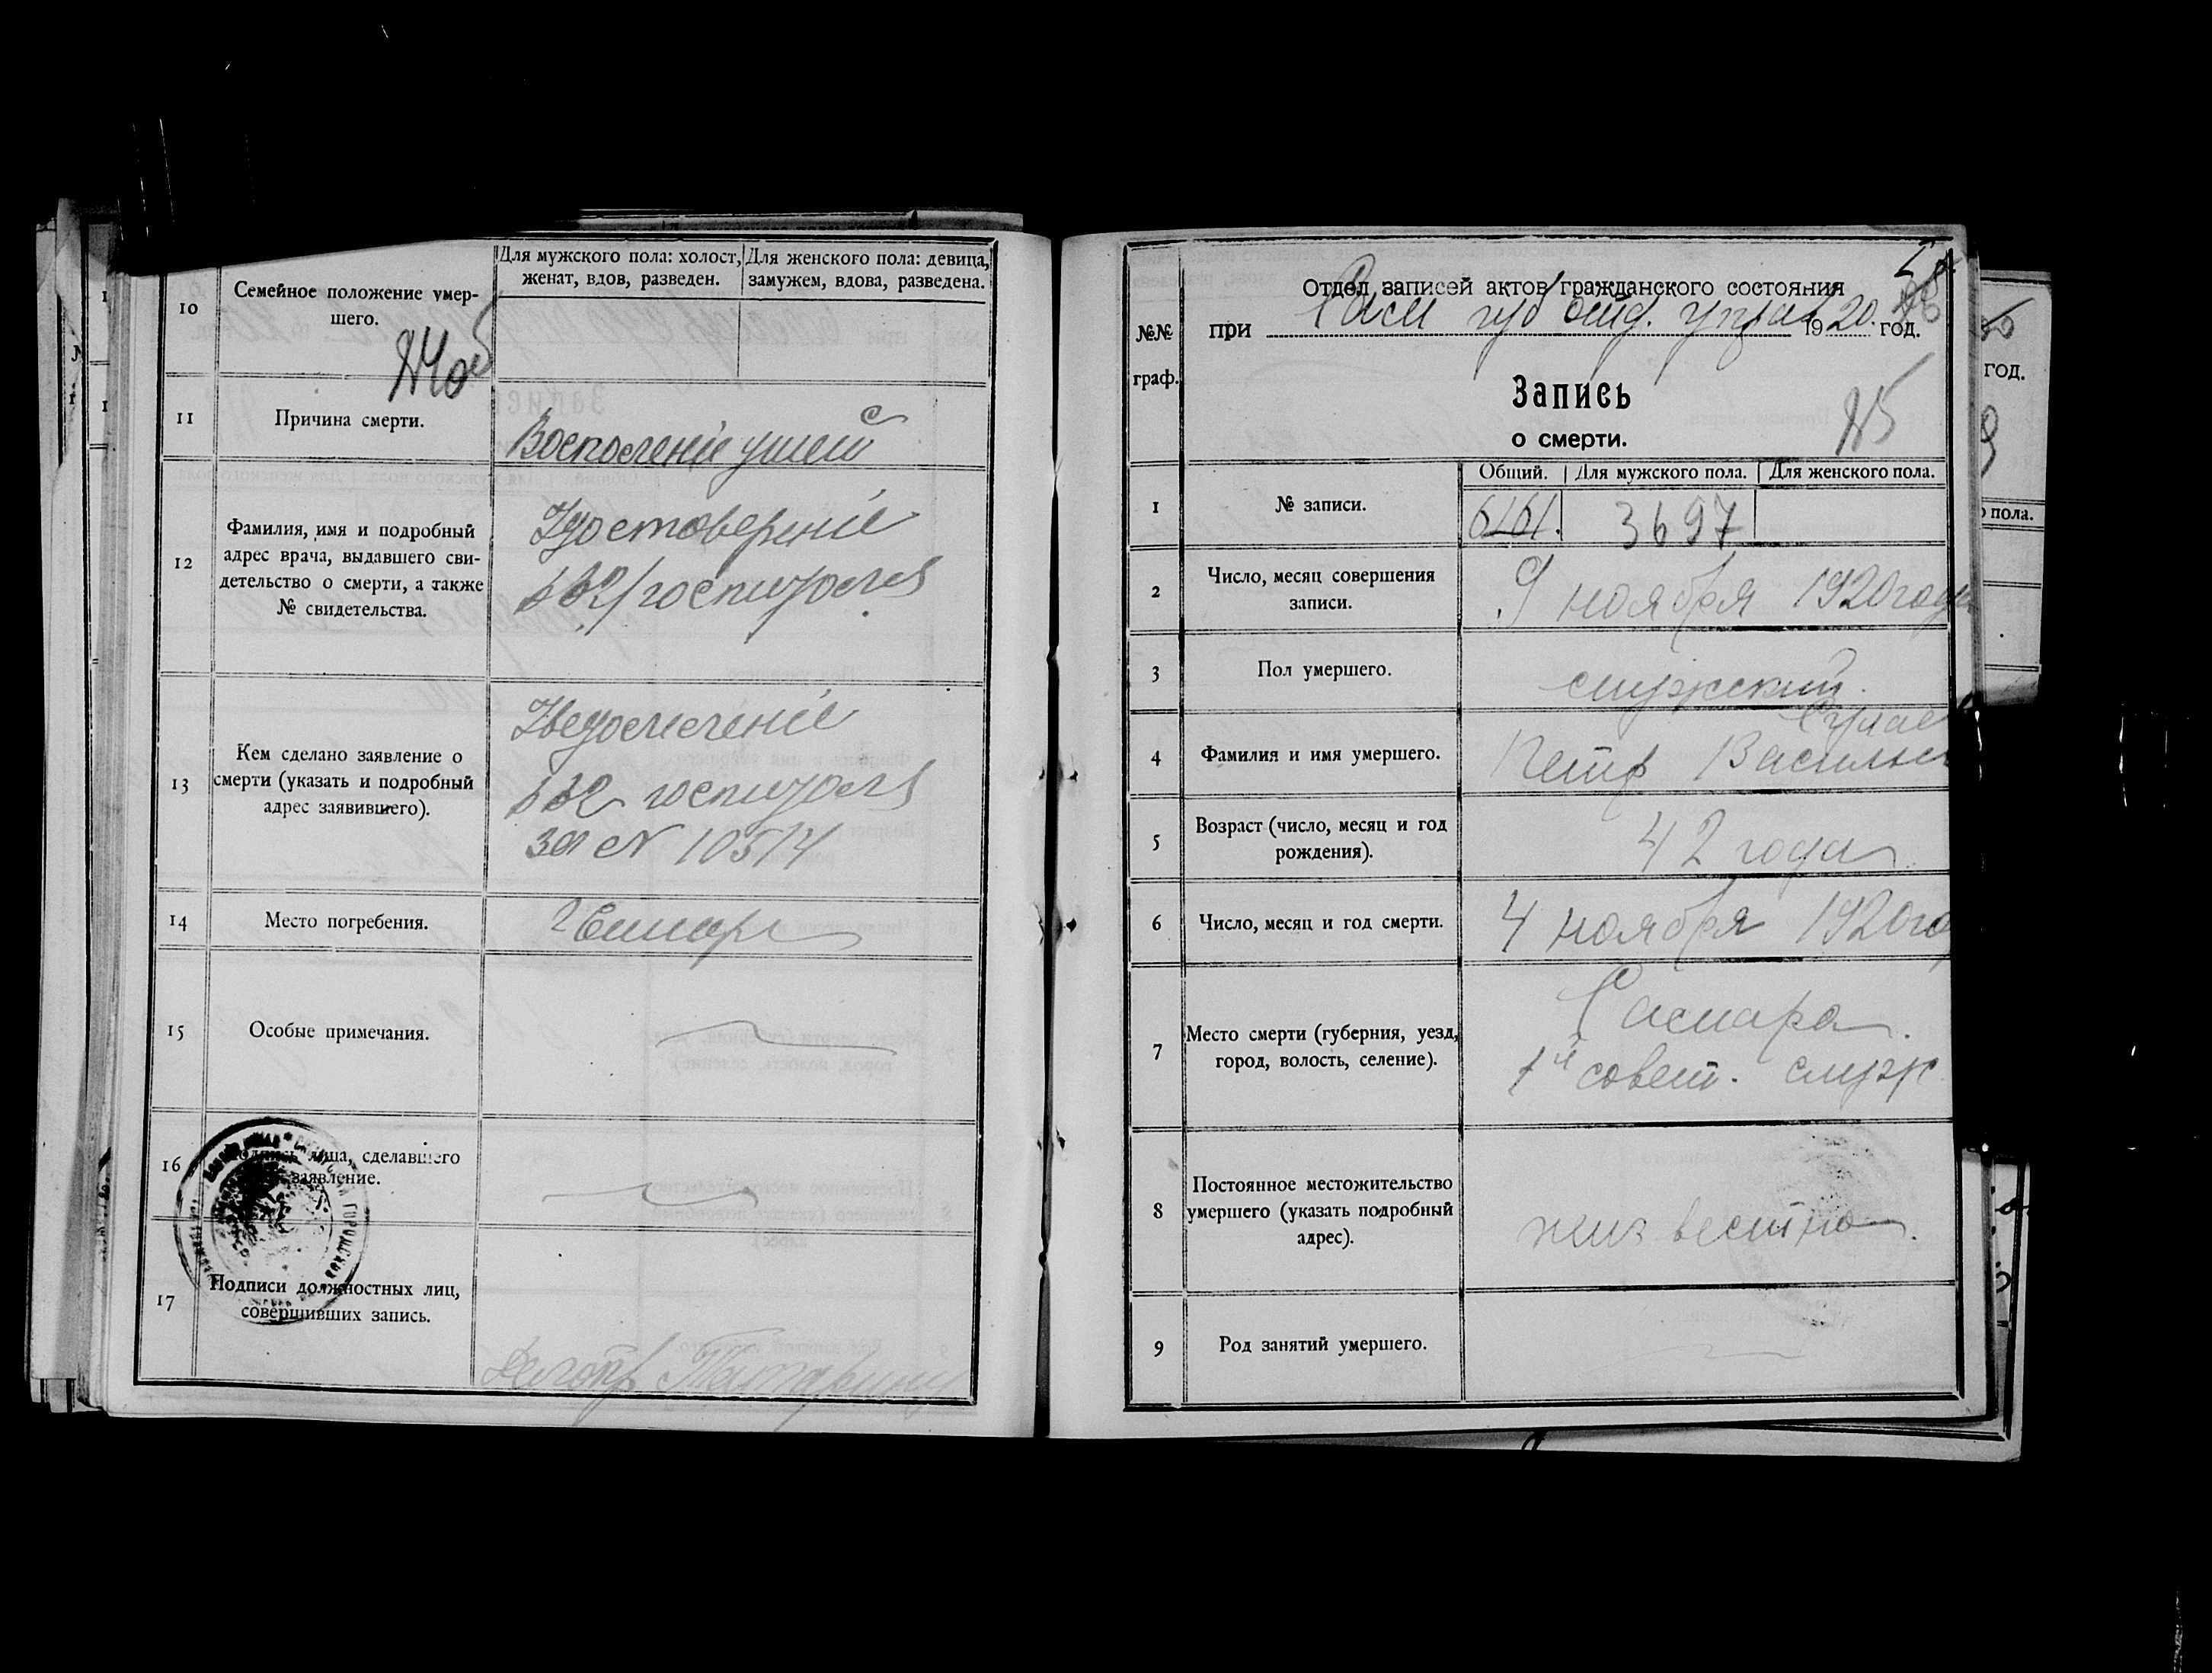 10
Семейное положение умер-
шего.
Для мужского пола: холост,
женат, вдов, разведен.
Для женского пола: девица,
замужем, вдова, разведена.
11
Причина смерти.
Восполение ушей
12
Фамилия, имя и подробный
адрес врача, выдавшего сви-
детельство о смерти, а также
№ свидетельства.
Удостоверение
госпиталя
13
Кем сделано заявление о
смерти (указать и подробный
адрес заявившего).
Уведомление
госпиталя
за N 10514
14
Место погребения.
г Самара
15
Особые примечания.
16
Подпись лица, сделавшего
заявление.
17
Подписи должностных лиц,
совершивших запись.
№№
граф.
Отдел записей актов гражданского состояния
при Сам губ отд. управ 1920 год.
Запись
о смерти.
1
№ записи.
Общий.
Для мужского пола.
Для женского пола.
3697
2
Число, месяц совершения
записи.
9 ноября 1920 года
3
Пол умершего.
мужский.
4
Фамилия и имя умершего.
Петр
5
Возраст (число, месяц и год
рождения).
42 года
6
Число, месяц и год смерти.
4 ноября 1920 го
7
Место смерти (губерния, уезд,
город, волость, селение).
Самара.
1й совет.
8
Постоянное местожительство
умершего (указать подробный
адрес).
неизвестно.
9
Род занятий умершего.
год.
пола.